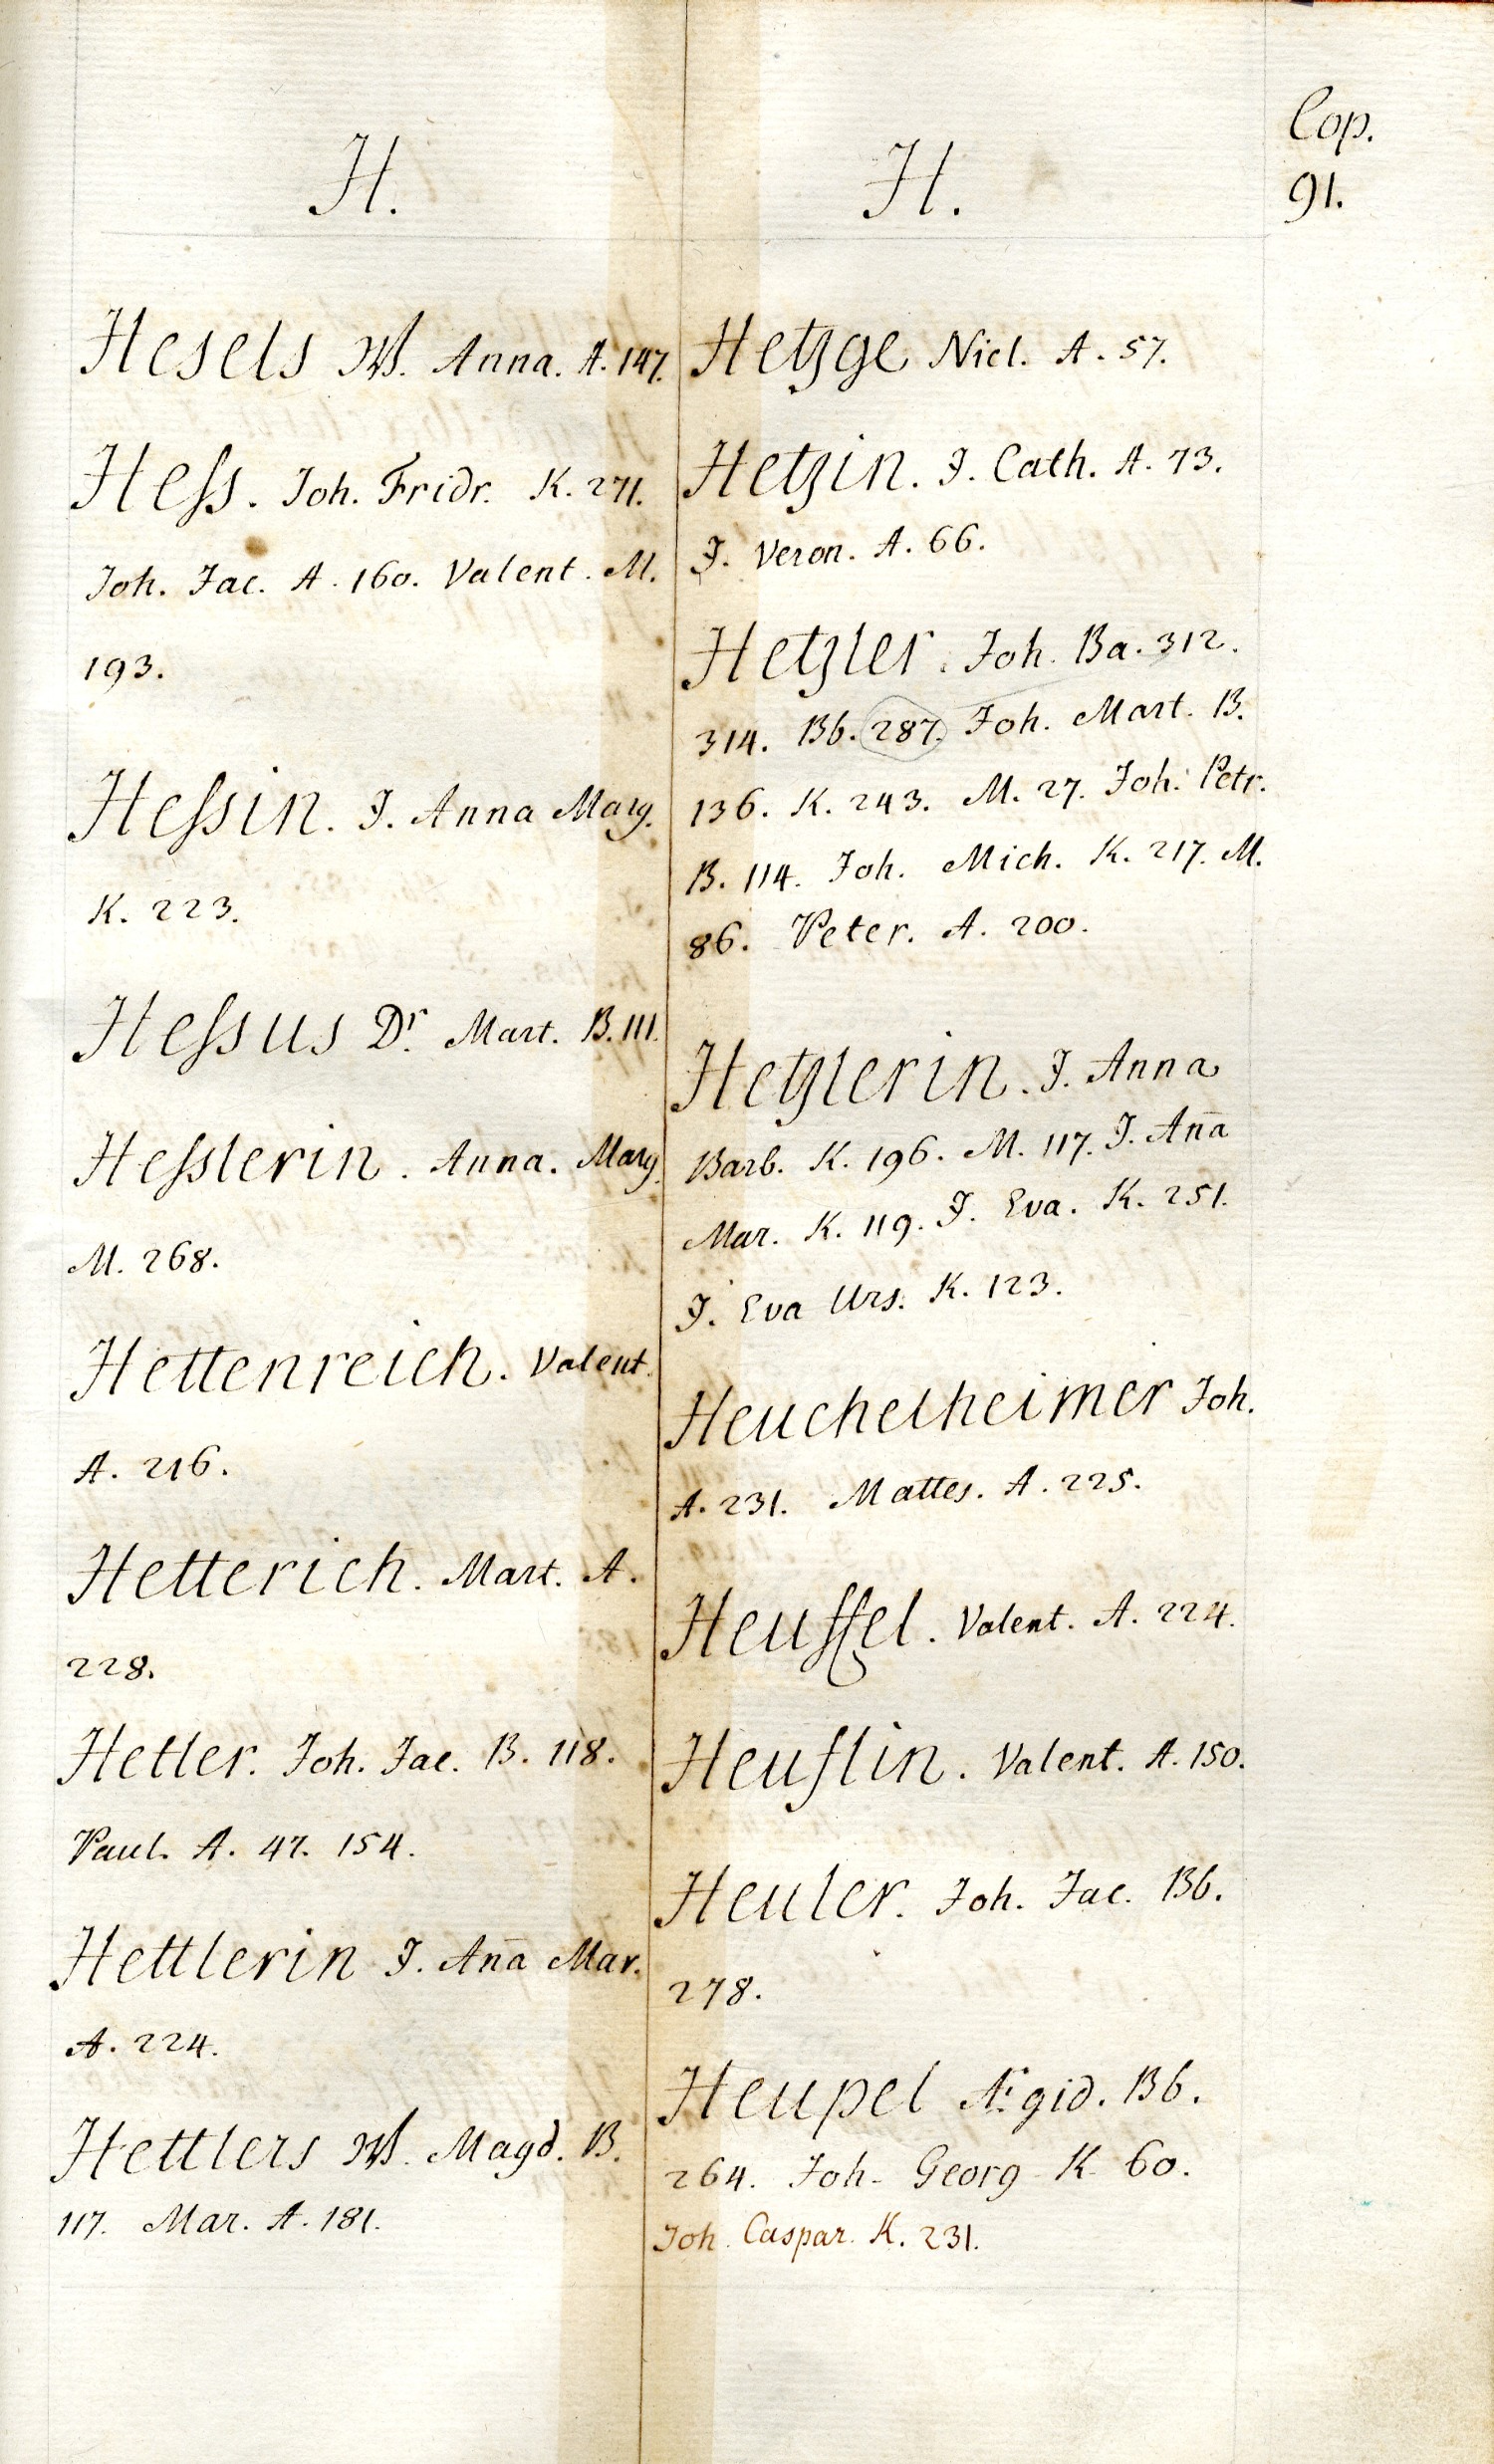 Cop.
91.
H.
Hesels W. Anna. A. 147.
Heſs. Joh. Fridr. K. 271.
Joh. Jac. A. 160. Valent. M.
193.
Heſsin. J. Anna Marg.
K. 223.
Heſsus Dr. Mart. B. 111.
Heſslerin. Anna. Marg.
M. 268.
Hettenreich. Valent.
A. 216.
Hetterich. Mart. A.
228.
Hetler. Joh. Jac. B. 118.
Paul. A. 47. 154.
Hettlerin J. Ana̅ Mar.
A. 224.
Hettlers W. Magd. B.
117. Mar. A. 181.
H.
Hetzge Nicl. A. 57.
Hetzin. J. Cath. A. 73.
J. Veron. A. 66.
Hetzler. Joh. Ba. 312.
314. Bb. 287. Joh. Mart. B.
136. K. 243. M. 27. Joh. Petr.
B. 114. Joh. Mich. K. 217. M.
86. Peter. A. 200.
Hetzlerin. J. Anna
Barb. K. 196. M. 117. J. Ana̅
Mar. K. 119. J. Eva. K. 251.
J. Eva Urs. K. 123.
Heuchelheimer Joh.
A. 231. Mattes. A. 225.
Heuſſel. Valent. A. 224.
Heuſlin. Valent. A. 150.
Heuler. Joh. Jac. Bb.
278.
Heupel Ægid. Bb.
264. Joh. Georg K. 60.
Joh. Caspar. K. 231.